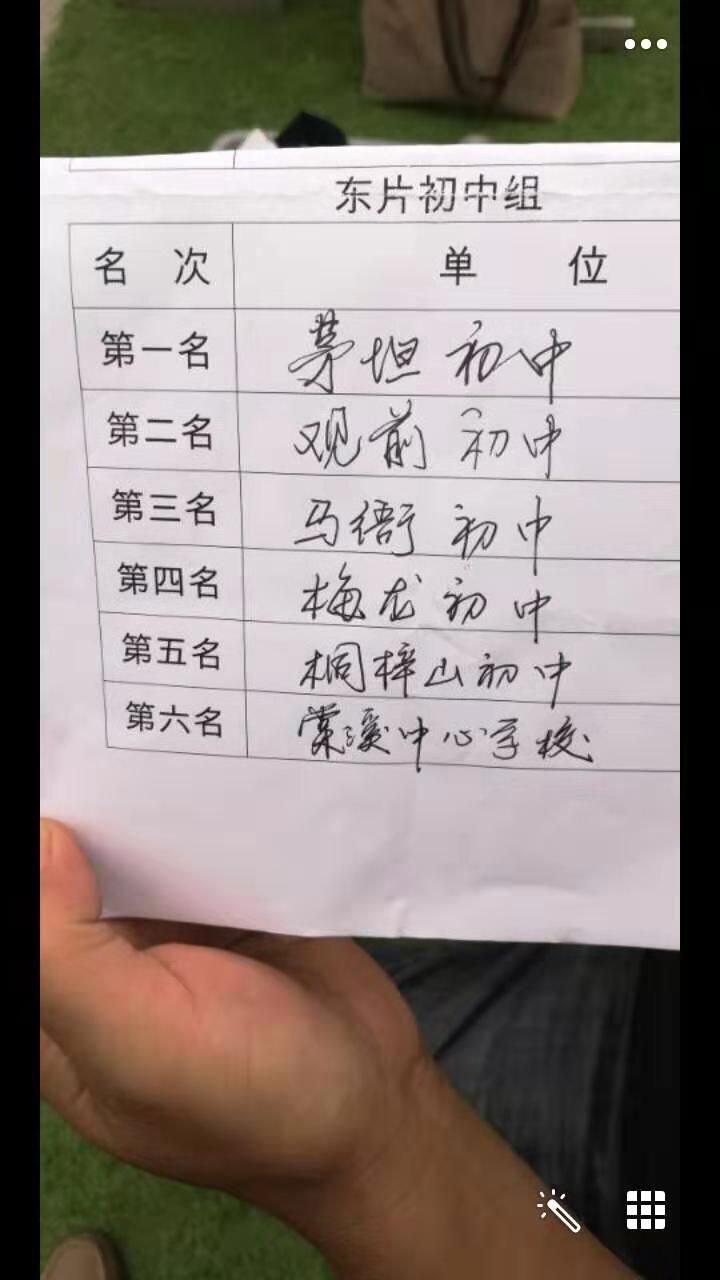 东片初中组
名次 单位
第一名 茅坦初中
第二名 观前初中
第三名 马衙初中
第四名 梅龙初中
第五名 桐梓山初中
第六名 棠溪中心学校